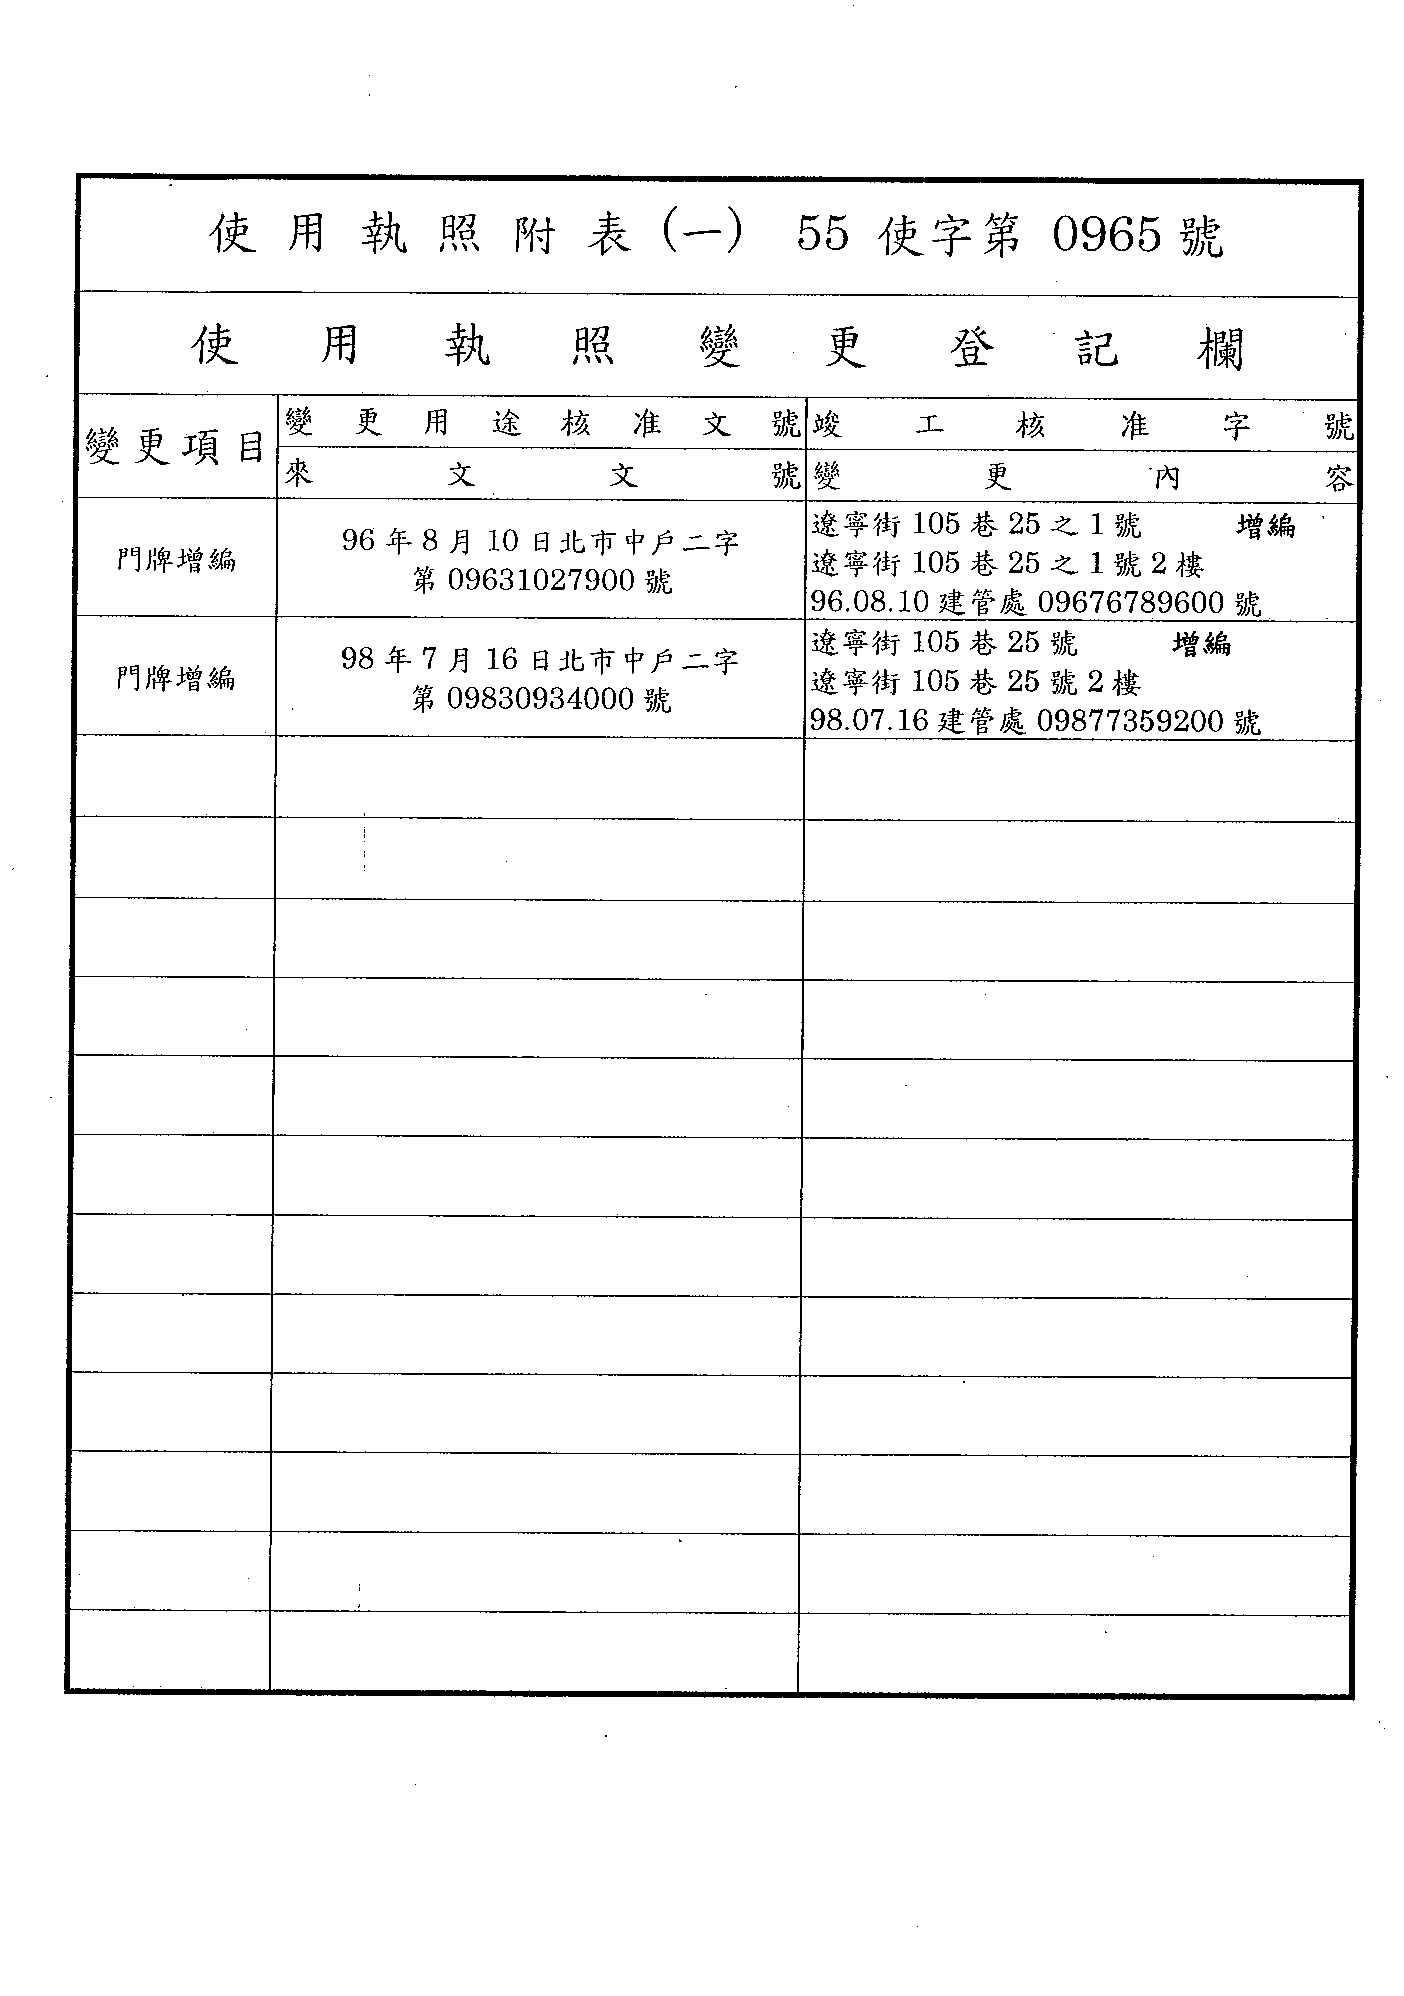 使用執照附表(一) 55 使字第 0965 號
使用執照變更登記欄
變更項目
變更用途核准文號
竣工核准字號
來文文號
變更內容
門牌增編
96 年 8 月 10 日北市中戶二字
第 09631027900 號
遼寧街 105 巷 25 之 1 號 增編
遼寧街 105 巷 25 之 1 號 2 樓
96.08.10 建管處 09676789600 號
門牌增編
98 年 7 月 16 日北市中戶二字
第 09830934000 號
遼寧街 105 巷 25 號 增編
遼寧街 105 巷 25 號 2 樓
98.07.16 建管處 09877359200 號